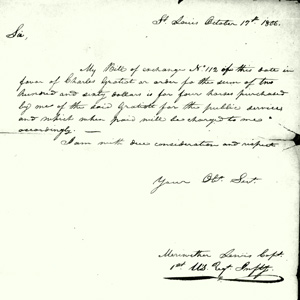 St. Louis October 17th. 1806.
Sir,
My Bill of exchange No. 112 of this date in
favor of Charles Gratiot or order for the sum of two
hundred and sixty dollars is for four horses purchased
by me of the said Gratiote for the public services
and which when paid will be charged to me
accordingly. —
I am with due consideration and respect
Your Obt. Sert.
Meriwether Lewis Capt.
1st. U.S. Regt. Infty.